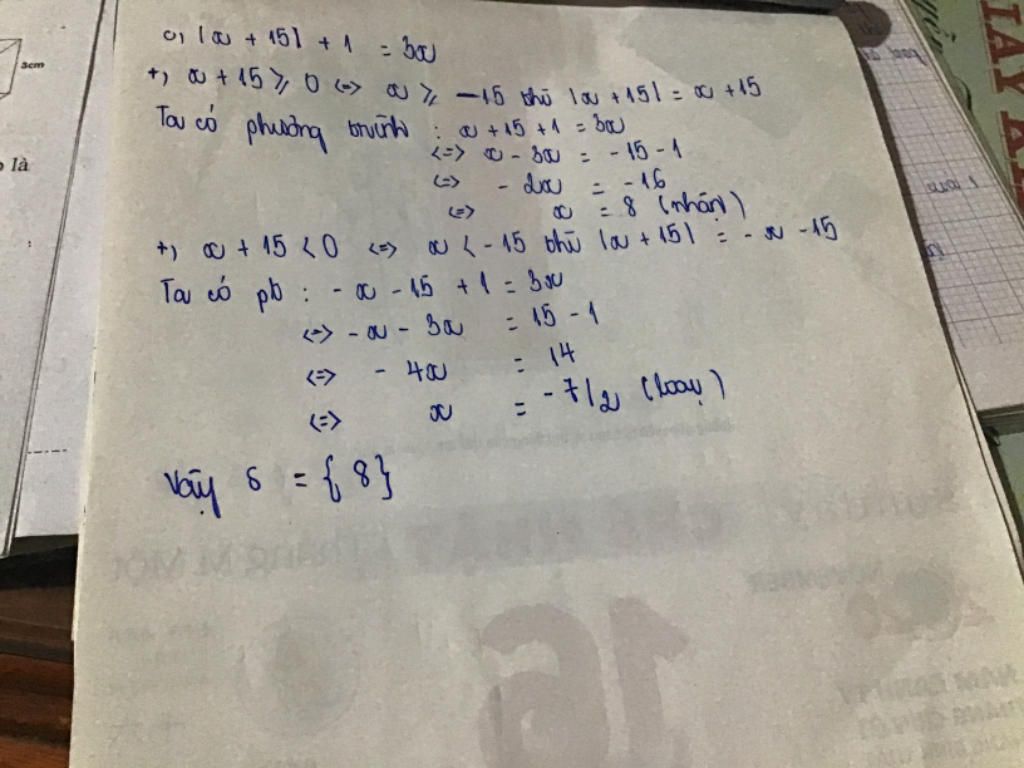 c, |x + 15| + 1 = 3x
+, x + 15 ≥ 0 <=> x ≥ -15 thì |x + 15| = x + 15
Ta có phương trình : x + 15 + 1 = 3x
<=> x - 3x = -15 - 1
<=> - 2x = -16
<=> x = 8 (nhận)
+, x + 15 < 0 <=> x < -15 thì |x + 15| = - x - 15
Ta có pt : - x - 15 + 1 = 3x
<=> - x - 3x = 15 - 1
<=> - 4x = 14
<=> x = -7/2 (loại)
Vậy S = { 8 }
3cm
là
NOVEMBER
16